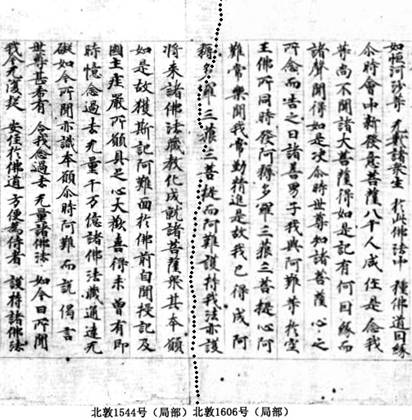 如恒河沙等 无數諸衆生 於此佛法中 種佛道因緣
尒時會中新發意菩薩八千人咸作是念我
等尚不聞諸大菩薩得如是記有何因緣而
諸聲聞得如是決尒時世尊知諸菩薩心之
所念而告之曰諸善男子我與阿難等於空
王佛所同時發阿耨多羅三藐三菩提心阿
難常樂聞我常勤精進是故我已得成阿
耨多羅三藐三菩提而阿難護持我法亦護
將來諸佛法藏教化成就諸菩薩衆其本願
如是故獲斯記阿難面於佛前自聞授記及
國土莊嚴所願具足心大歡喜得未曾有即
時憶念過去无量千万億諸佛法藏通達无
礙如今所聞亦識本願尒時阿難而說偈言
世尊甚希有 令我念過去 无量諸佛法 如今日所聞
我今无復疑 安住於佛道 方便為侍者 護持諸佛法
北敦1544号（局部） 北敦1606号（局部）